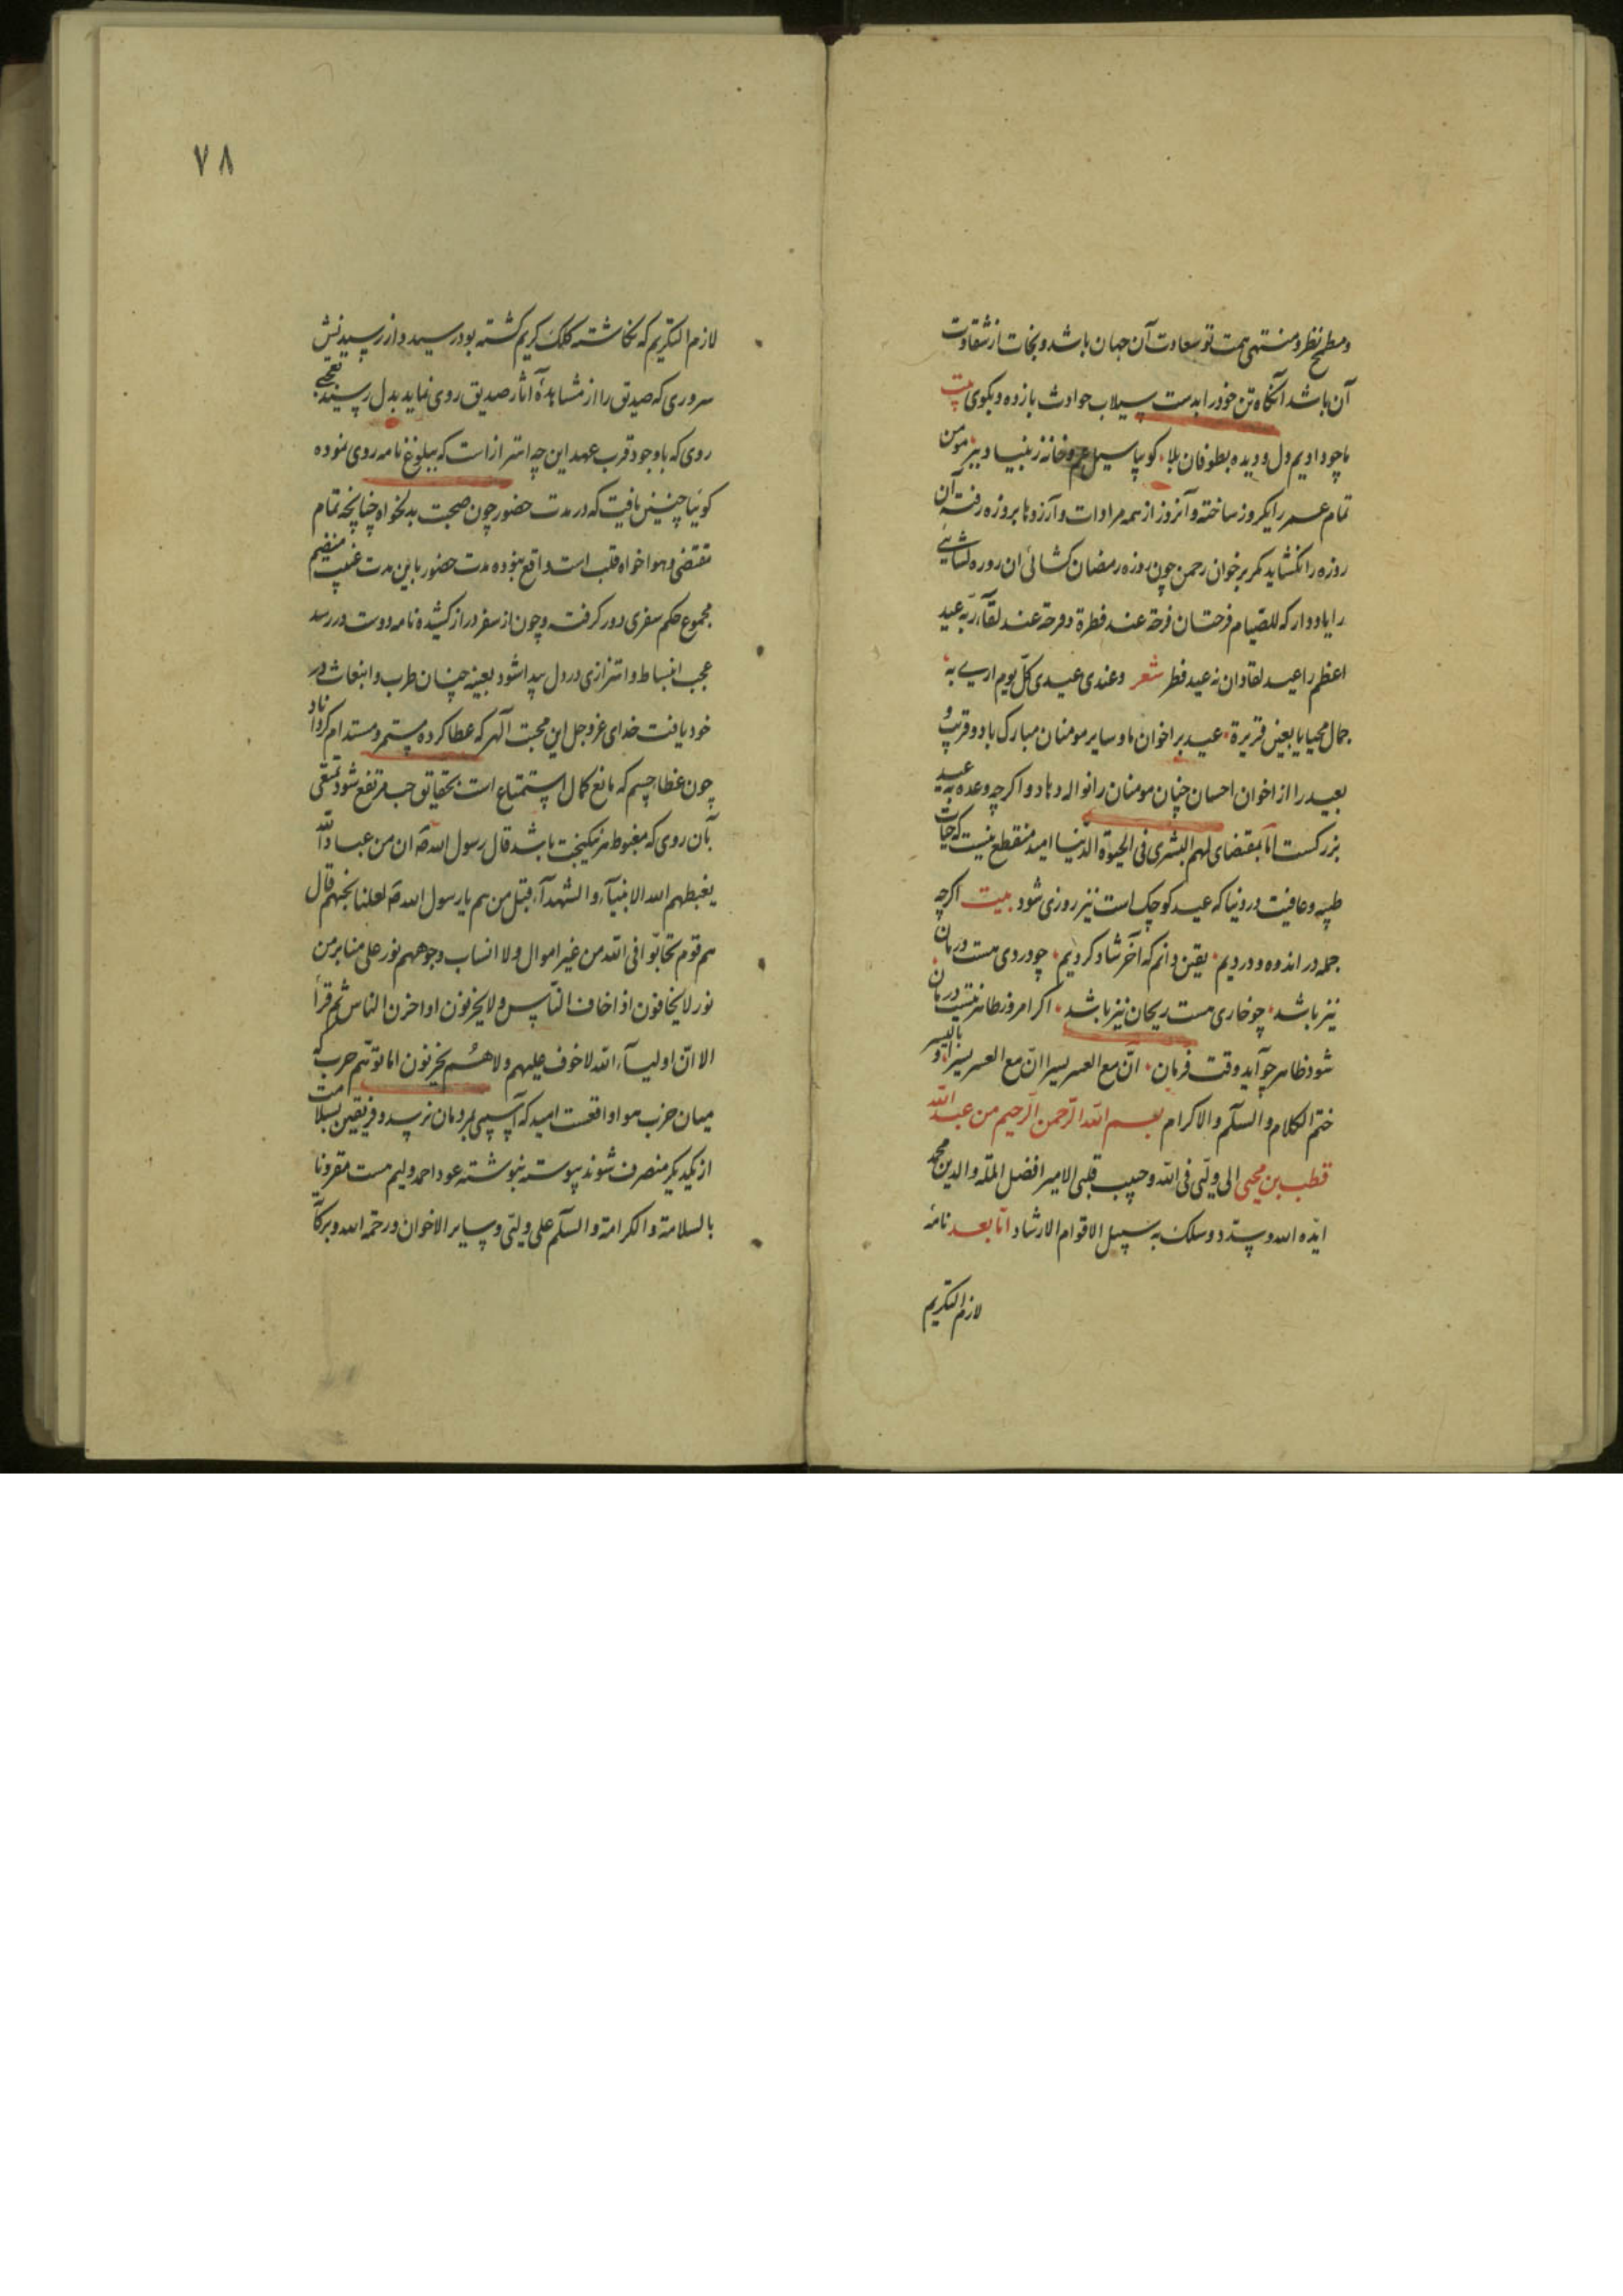 و مطمح نظر و منتهی همت تو سعادت آن جهان باشد و نجات از شقاوت
آن باشد آنکاه تن خود را بدست سیلاب حوادث باز ده و بکوی بیت
ما چو دادیم دل و دیده بطوفان بلا کو بیا سیل غم و خانه ز بنیاد ببر مومن
تمام عمر را یکروز ساخته و آنروز از همه مرادات و آرزوها بروزه رفته آن
روزه را نکشاید مکر بر خوان رحمن چون روزه رمضان کشائی ان روزه کشایی
را یاد دار که للصّیام فرحتان فرحة عند فطره و فرحة عند لقآء ربّه عید
اعظم را عید لقا دان نه عید فطر شعر وعندی عیدی کلّ یوم اری به
جمال محیایا بعین قریرة عید بر اخوان ما و سایر مومنان مبارک باد و قریب و
بعید را از اخوان احسان جنان مومنان را نواله دهاد و اکرچه وعده به عید
بزرکست امّا بمقتضای لهم البشری فی الحیوة الدنیا امید منقطع نیست که حیات
طیبه و عافیت در دنیا که عید کوچک است نیز روزی شود بیت اکرچه
جمله در اندوه و دردیم یقین دانم که آخر شاد کردیم چو دردی هست درمان
نیز باشد چو خاری هست ریحان نیز باشد اکر امروز ظاهر نیست درمان
شود ظاهر چو آید وقت فرمان انّ مع العسر یسرا انّ مع العسر یسرا و بالیسر
ختم الکلام و السلّم و الاکرام بسم الله الرّحمن الرّحیم من عبد الله
قطب بن محیی الی ولیّی فی الله و حبیب قلبی الامیر افضل الملّه و الدین محمد
ایّده الله و سدّد و سلک به سبیل الاقوام الارشاد امّا بعد نامهٔ
لازم التکریم
٧٨
لازم التکریم که نکاشته کلک کریم کشته بود رسید و از رسیدنش
سروری که صدیق را از مشاهدهٔ آثار صدیق روی نماید بدل رسید تعجبی
روی که با وجود قرب عهد این چه اهتزاز است که ببلوغ نامه روی نموده
کوئیا چنین یافت که در مدت حضور چون صحبت بدلخواه چنانچه تمام
مقتضی و هواخواه قلب است واقع نبوده مدت حضور با این مدت غیبت منضم
مجموع حکم سفری دور کرفت و چون از سفر دراز کشیده نامه دوست در رسد
عجب انبساط و اهتزازی در دل پیدا شود بعینه چنان طرب و انبعاث در
خود یافت خدای عزوجل این محبت آلهر که عطا کرده مستمر و مستدام کرداناد
چون غطاء جسم که مانع کمال استمتاع است بحقایق حب مرتفع شود تمتعی
بآن روی که مغبوط هر نیکبخت باشد قال رسول الله صَ ان من عباد الله
یغبطهم الله الانبیآء و الشهدآء قیل من هم یا رسول الله صَ لعلنا نحبهم قال
هم قوم تحابّوا فی الله من غیر اموال و لا انساب وجوههم نور علی منابر من
نور لا یخافون اذا خاف النّاس و لا یحزنون اذا حزن الناس ثم قرأ
الا انّ اولیآء الله لا خوف علیهم و لا هُم یحزنون اما توهّم حرب که
میان حزب هوا واقعست امید که آسیبی بمردمان نرسد و فریقین بسلامت
از یکدیکر منصرف شوند پیوسته نبوشته عود احمد ولیم هست مقرونا
بالسلامة و الکرامة و السلّم علی ولیّی و سایر الاخوان و رحمة الله و برکآ